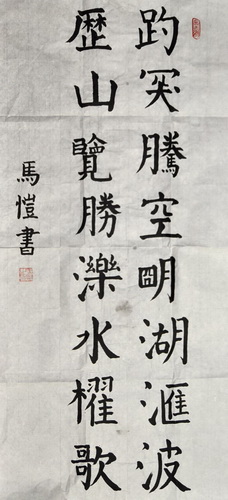 趵突騰空明湖滙波
歷山覽勝濼水櫂歌
馬愷書